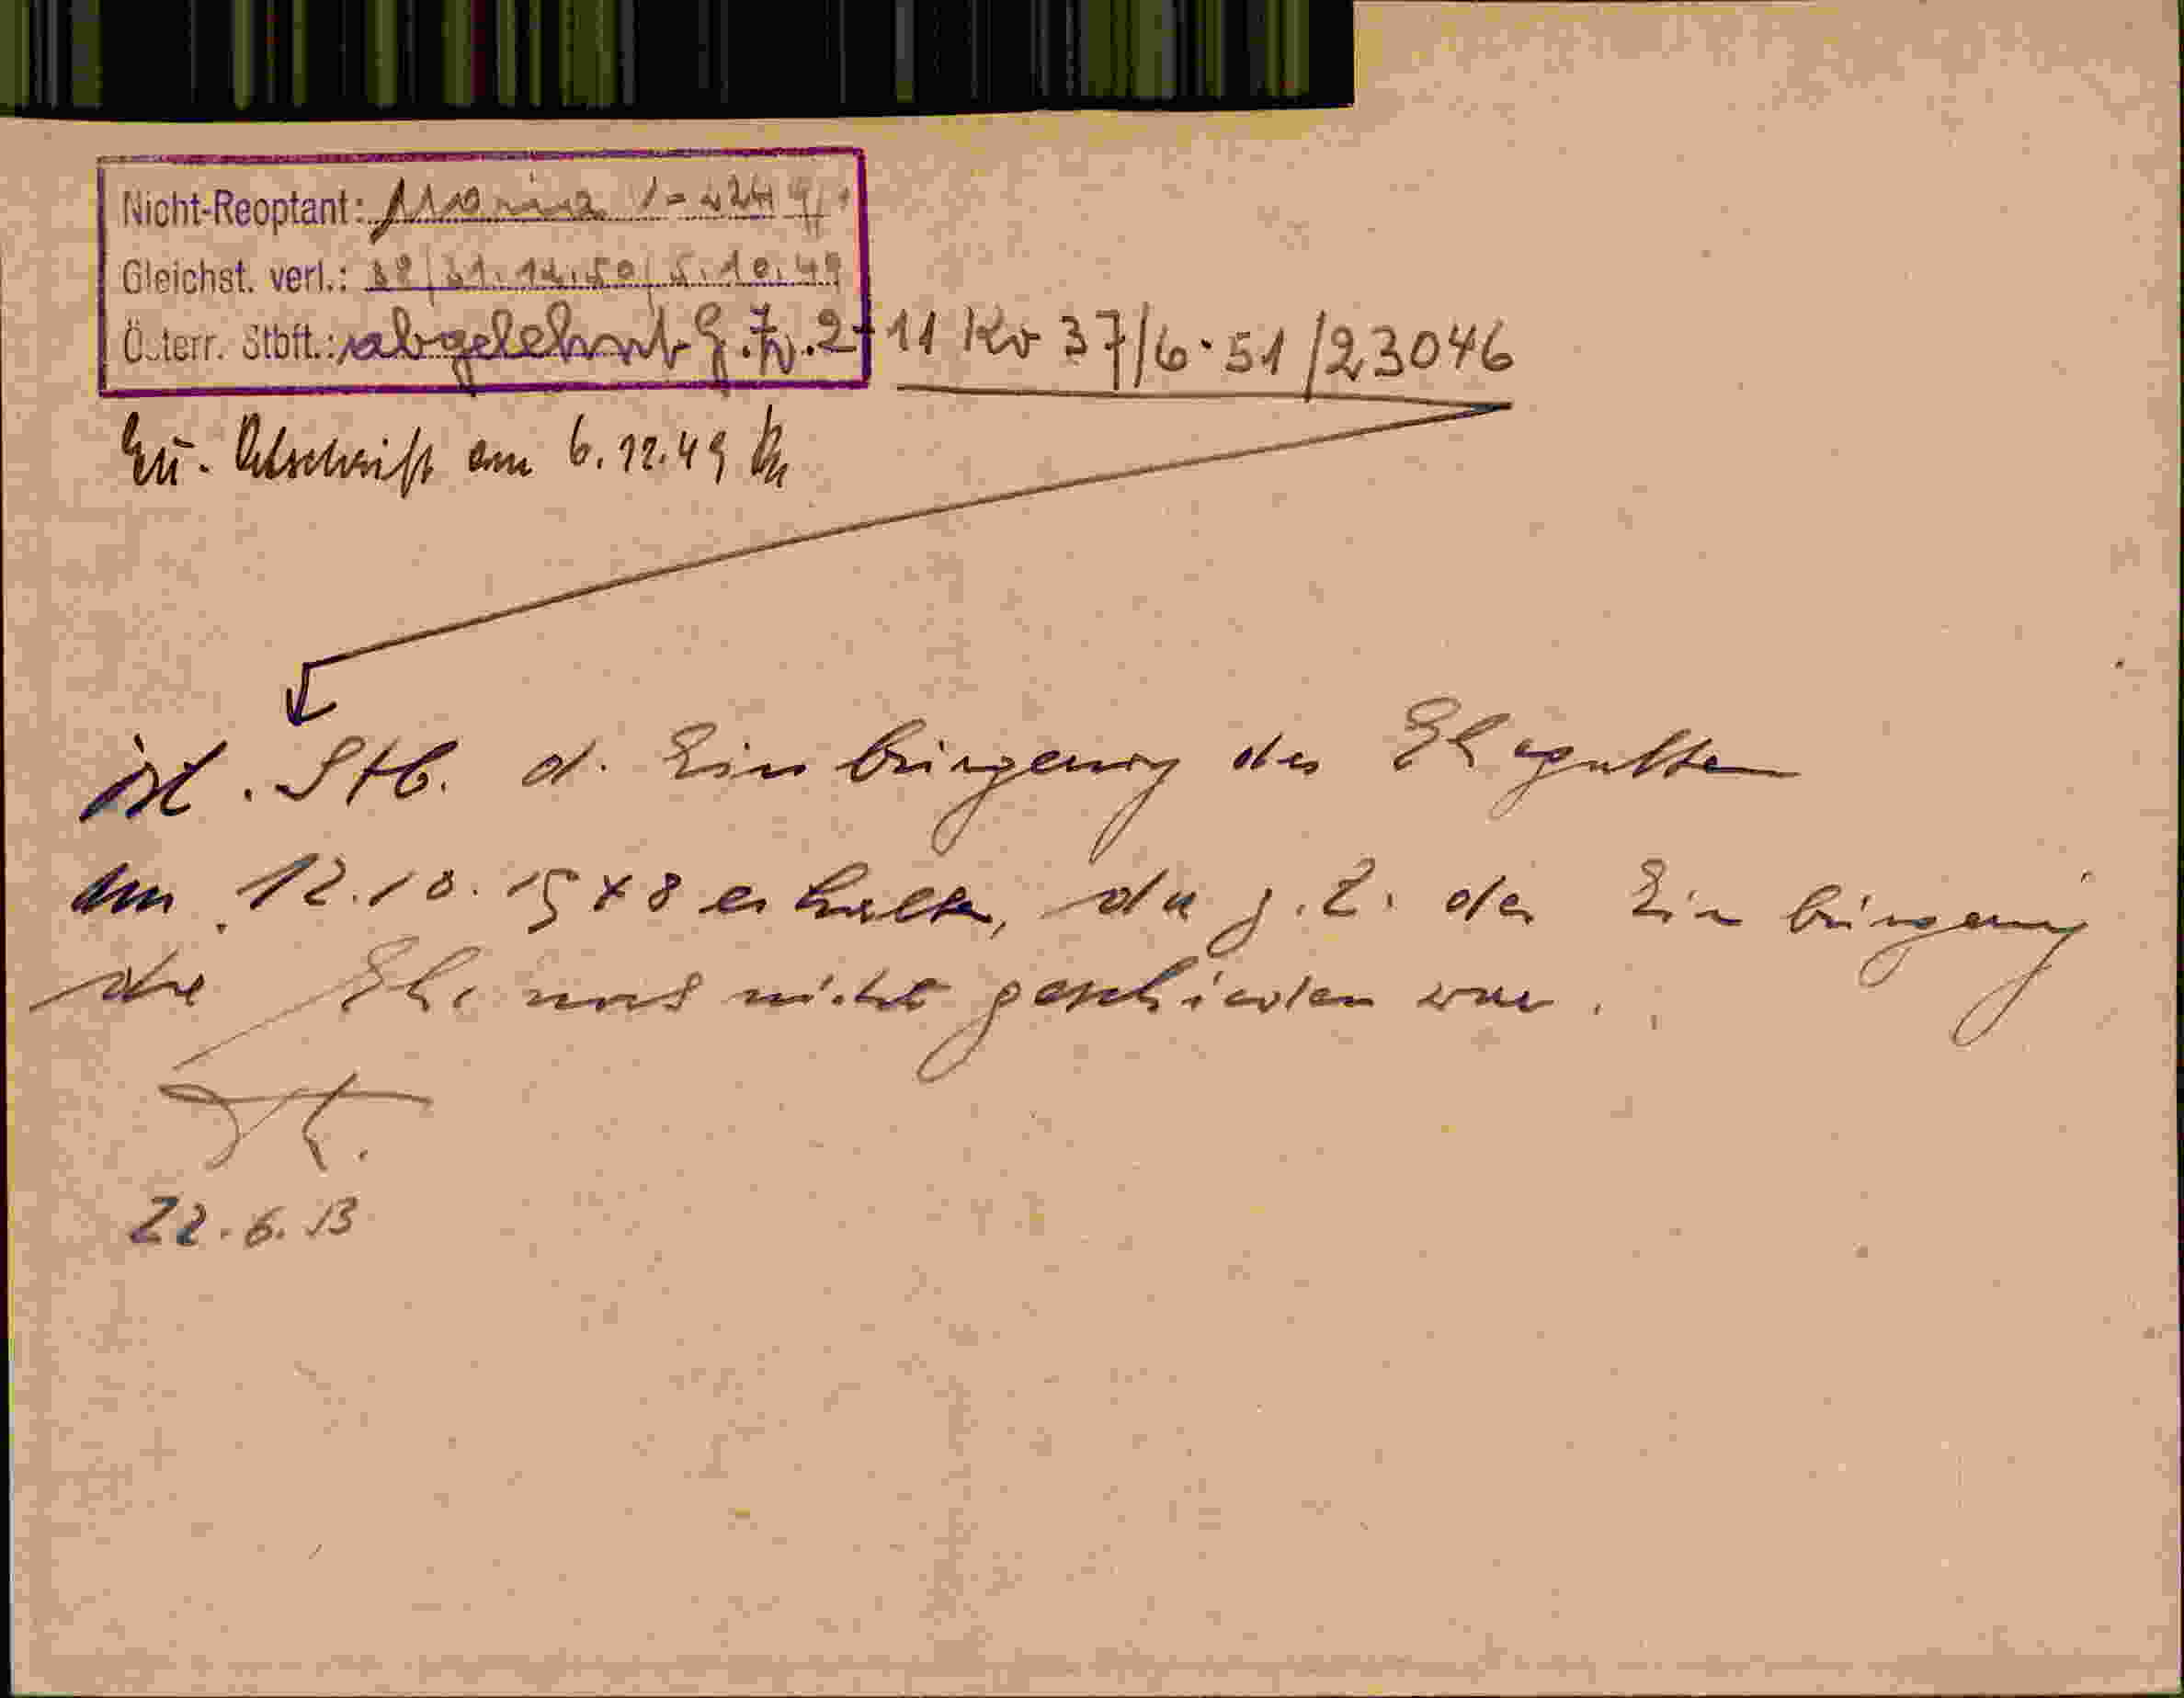 Nicht-Reoptant:
Gleichst. verl.: 38/31.12.50/5.10.49
Österr. Stbft.: abgelehnt G.Z. 2-11 Kv 37/6.51/23046
Abschrift am 6.12.49
öst. Stb. d. Einbürgerung des Ehegatten
am 12.10.1948 erhalten, da z. Z. der Einbürgerung
die Ehe noch nicht geschieden war.
22.6.